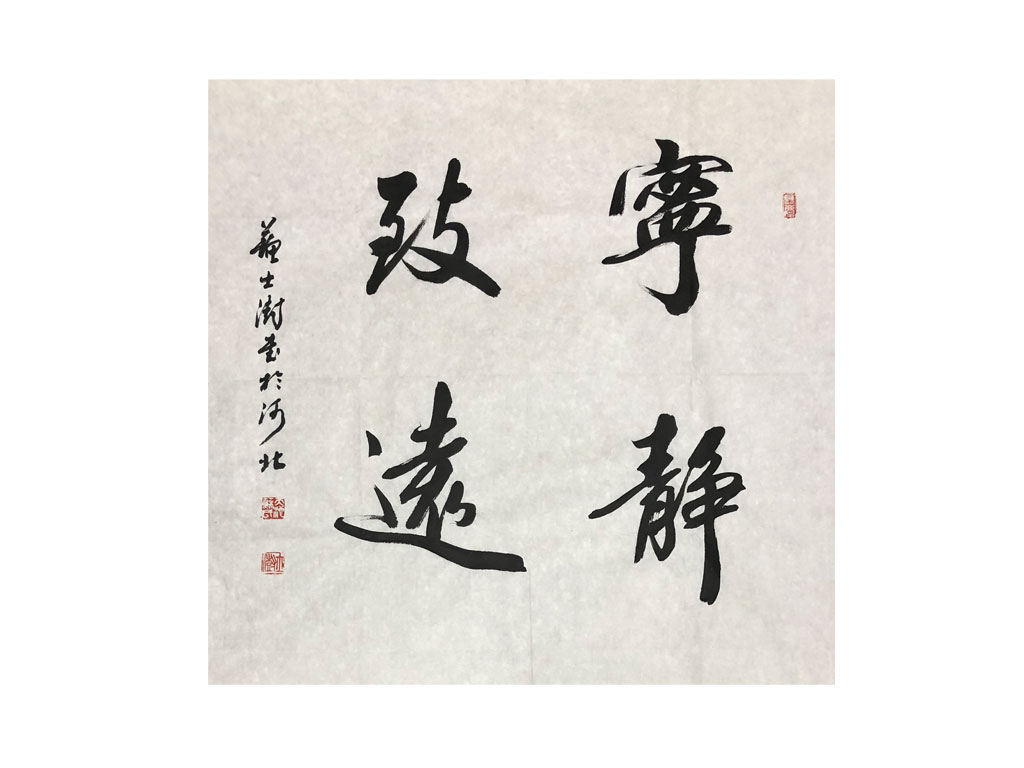 寧靜
致遠
蘇士澍書於河北